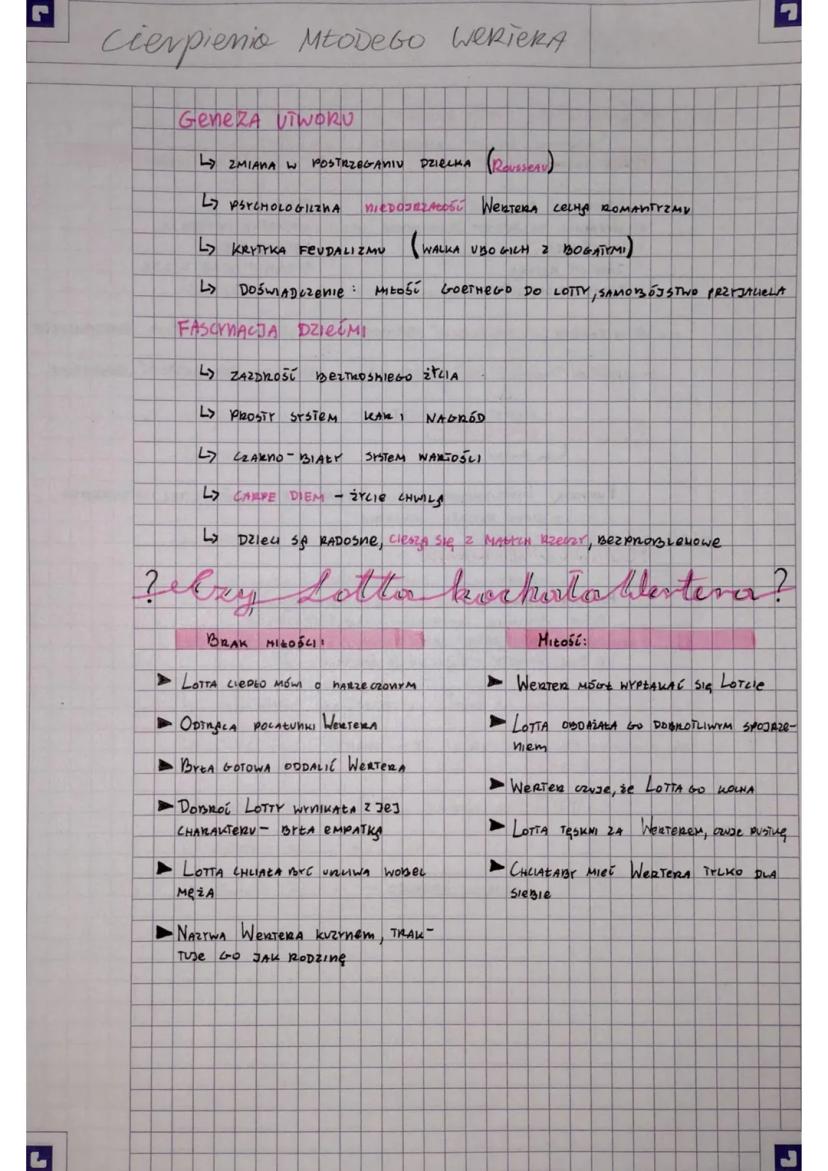 Cierpienia Młodego Wertera
Geneza utworu
↳ zmiana w postrzeganiu dziecka (Rousseau)
↳ psychologiczna niedojrzałość Wertera cechą romantyzmu
↳ krytyka feudalizmu (walka ubogich z bogatymi)
↳ doświadczenie: miłość Goethego do Lotty, samobójstwo przyjaciela
Fascynacja dziećmi
↳ zazdrość beztroskiego życia
↳ prosty system kar i nagród
↳ czarno-biały system wartości
↳ carpe diem - życie chwilą
↳ dzieci są radosne, cieszą się z małych rzeczy, bezproblemowe
? Czy Lotta kochała Wertera ?
Brak miłości:
➤ Lotta ciepło mówi o narzeczonym
➤ Odtrąca pocałunki Wertera
➤ Była gotowa oddalić Wertera
➤ Dobroć Lotty wynikała z jej
charakteru - była empatką
➤ Lotta chciała być uczciwa wobec
męża
➤ Nazywa Wertera kuzynem, trak-
tuje go jak rodzinę
Miłość:
➤ Werter mógł wypłakać się Lotcie
➤ Lotta obdażała go dobrotliwym spojrze-
niem
➤ Werter czuje, że Lotta go kocha
➤ Lotta tęskni za Werterem, czuje pustkę
➤ Chciałaby mieć Wertera tylko dla
siebie